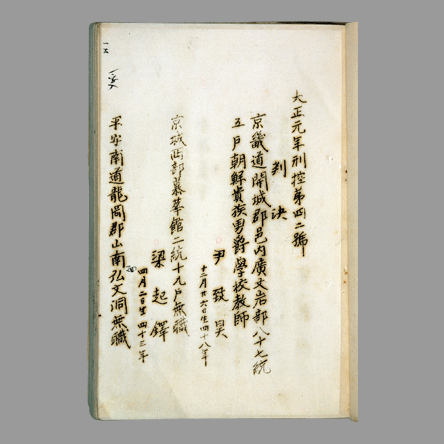 大正元年刑控第四二號
判決
京畿道開城郡邑内廣文岩部八十七統
五戸朝鮮貴族男爵學校教師
尹致昊
十二月廿六日生四十八年
京城西部慕華館二統十九戸無職
梁起鐸
四月二日生四十二年
平安南道龍岡郡山南弘文洞無職